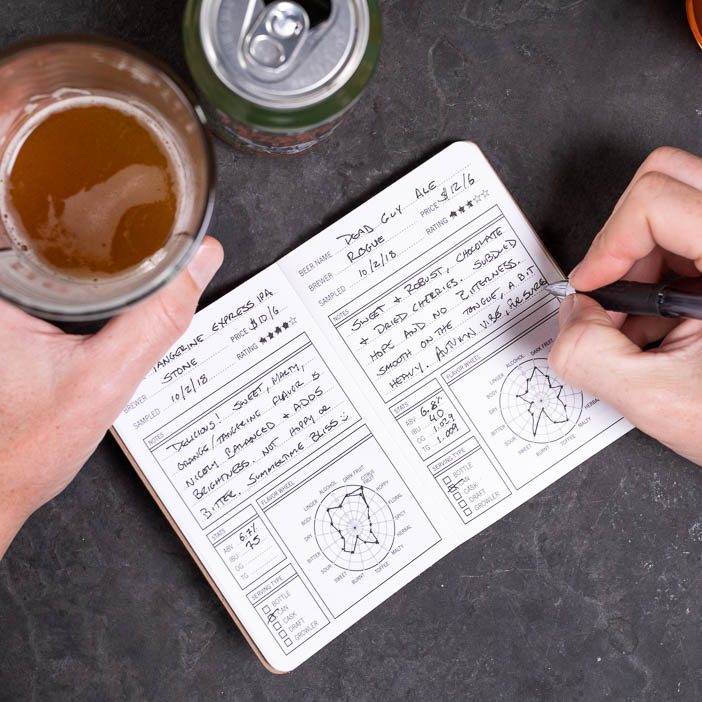 TANGERINE EXPRESS IPA
STONE
PRICE $10/6
BREWER
SAMPLED 10/2/18
RATING ★★★★☆
NOTES
DELICIOUS! SWEET, MALTY,
ORANGE/TANGERINE FLAVOR IS
NICELY BALANCED + ADDS
BRIGHTNESS. NOT HOPPY OR
BITTER. SUMMERTIME BLISS :)
STATS
ABV 6.7%
IBU 75
OG
TG
SERVING TYPE
BOTTLE
CAN
CASK
DRAFT
GROWLER
FLAVOR WHEEL
DARK FRUIT
CITRUS FRUIT
HOPPY
FLORAL
SPICY
HERBAL
MALTY
TOFFEE
BURNT
SWEET
SOUR
BITTER
DRY
BODY
LINGER
ALCOHOL
BEER NAME DEAD GUY ALE
BREWER ROGUE
PRICE $12/6
SAMPLED 10/2/18
RATING ★★★☆☆
NOTES
SWEET + ROBUST, CHOCOLATE
+ DRIED CHERRIES. SUBDUED
HOPS AND NO BITTERNESS.
SMOOTH ON THE TONGUE, A BIT
HEAVY. AUTUMN VIBE, FOR SURE!
STATS
ABV 6.8%
IBU 40
OG
TG 1.009
SERVING TYPE
BOTTLE
CAN
CASK
DRAFT
GROWLER
FLAVOR WHEEL
DARK FRUIT
HERBAL
MALTY
TOFFEE
BURNT
SWEET
SOUR
BITTER
DRY
BODY
LINGER
ALCOHOL